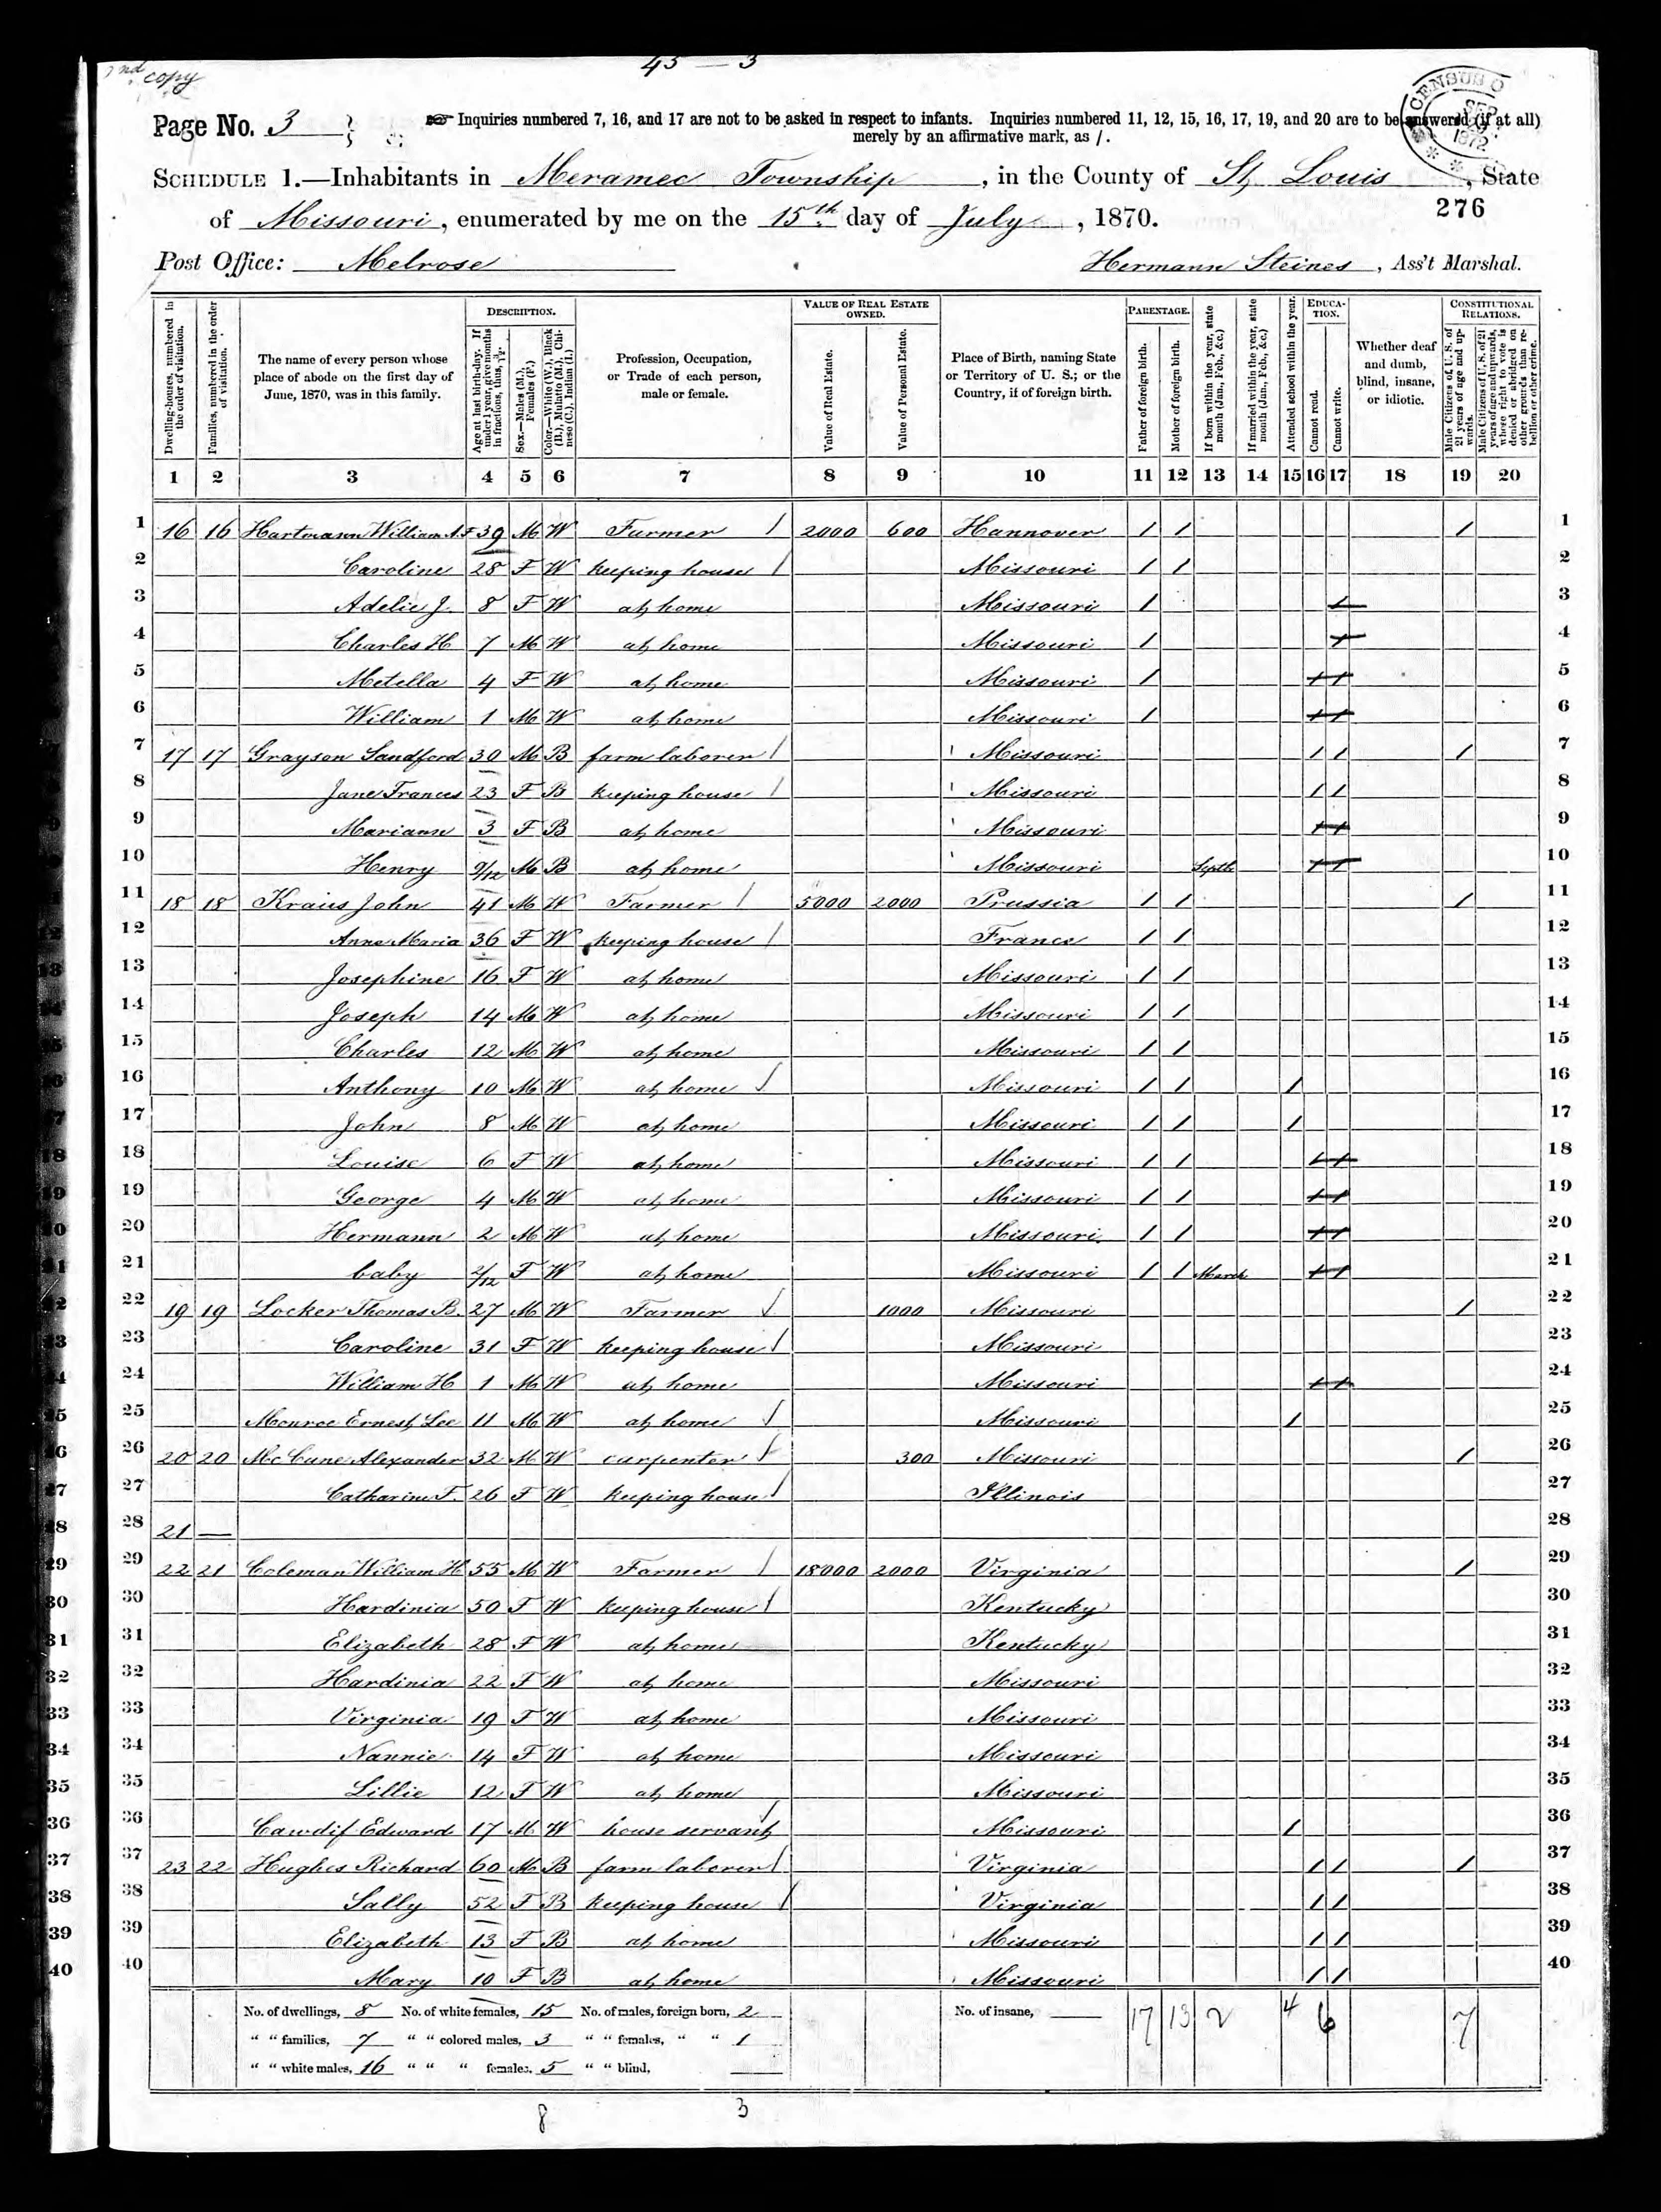 2nd copy
45 — 3
Page No. 3
Inquiries numbered 7, 16, and 17 are not to be asked in respect to infants. Inquiries numbered 11, 12, 15, 16, 17, 19, and 20 are to be answered (if at all)
merely by an affirmative mark, as /.
CENSUS O
SEP
1872
SCHEDULE 1.—Inhabitants in Meramec Township, in the County of St. Louis, State
of Missouri, enumerated by me on the 15th day of July, 1870.
276
Post Office: Melrose
Hermann Steines, Ass't Marshal.
Dwelling-houses, numbered in the order of visitation.
Families, numbered in the order of visitation.
The name of every person whose place of abode on the first day of June, 1870, was in this family.
DESCRIPTION.
Age at last birth-day. If under 1 year, give months in fractions, thus, 3/12.
Sex.—Males (M.), Females (F.)
Color.—White (W.), Black (B.), Mulatto (M.), Chinese (C.), Indian (I.)
Profession, Occupation, or Trade of each person, male or female.
VALUE OF REAL ESTATE OWNED.
Value of Real Estate.
Value of Personal Estate.
Place of Birth, naming State or Territory of U. S.; or the Country, if of foreign birth.
PARENTAGE.
Father of foreign birth.
Mother of foreign birth.
If born within the year, state month (Jan., Feb., &c.)
If married within the year, state month (Jan., Feb., &c.)
Attended school within the year.
EDUCATION.
Cannot read.
Cannot write.
Whether deaf and dumb, blind, insane, or idiotic.
CONSTITUTIONAL RELATIONS.
Male Citizens of U. S. of 21 years of age and upwards.
Male Citizens of U. S. of 21 years of age and upwards, whose right to vote is denied or abridged on other grounds than rebellion or other crime.
1 2 3 4 5 6 7 8 9 10 11 12 13 14 15 16 17 18 19 20
1 16 16 Hartmann William 39 M W Farmer / 2000 600 Hannover / / / 1
2 Caroline 28 F W keeping house / Missouri / / 2
3 Adelie J. 8 F W at home Missouri / / 3
4 Charles H 7 M W at home Missouri / / 4
5 Metella 4 F W at home Missouri / / / 5
6 William 1 M W at home Missouri / / / 6
7 17 17 Grayson Sandford 30 M B farm laborer / Missouri / / / 7
8 Jane Frances 23 F B keeping house / Missouri / / 8
9 Mariann 3 F B at home Missouri / / 9
10 Henry 9/12 M B at home Missouri Septb / / 10
11 18 18 Kraus John 41 M W Farmer / 5000 2000 Prussia / / / 11
12 Anna Maria 36 F W keeping house / France / / 12
13 Josephine 16 F W at home Missouri / / 13
14 Joseph 14 M W at home Missouri / / 14
15 Charles 12 M W at home Missouri / / 15
16 Anthony 10 M W at home / Missouri / / / 16
17 John 8 M W at home Missouri / / / 17
18 Louise 6 F W at home Missouri / / / / 18
19 George 4 M W at home Missouri / / / / 19
20 Hermann 2 M W at home Missouri / / / / 20
21 baby 2/12 F W at home Missouri / / March / / 21
22 19 19 Locker Thomas B. 27 M W Farmer / 1000 Missouri / 22
23 Caroline 31 F W keeping house / Missouri 23
24 William H 1 M W at home Missouri / / 24
25 Monroe Ernest Lee 11 M W at home / Missouri / 25
26 20 20 McCune Alexander 32 M W carpenter / 300 Missouri / 26
27 Catharine F. 26 F W keeping house / Illinois 27
28 21 — 28
29 22 21 Coleman William H 55 M W Farmer / 18000 2000 Virginia / 29
30 Hardinia 50 F W keeping house / Kentucky 30
31 Elizabeth 28 F W at home Kentucky 31
32 Hardinia 22 F W at home Missouri 32
33 Virginia 19 F W at home Missouri 33
34 Nannie 14 F W at home Missouri 34
35 Lillie 12 F W at home Missouri 35
36 Cawdif Edward 17 M W house servant / Missouri / 36
37 23 22 Hughes Richard 60 M B farm laborer / Virginia / / / 37
38 Sally 52 F B keeping house / Virginia / / 38
39 Elizabeth 13 F B at home Missouri / / 39
40 Mary 10 F B at home Missouri / / 40
No. of dwellings, 8 No. of white females, 15 No. of males, foreign born, 2 No. of insane, — 17 13 2 4 6 7
" " families, 7 " " colored males, 3 " " females, " " 1
" " white males, 16 " " " females, 5 " " blind, —
8 3